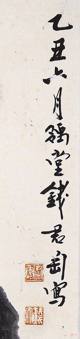 乙丑六月강堂錢君匋寫